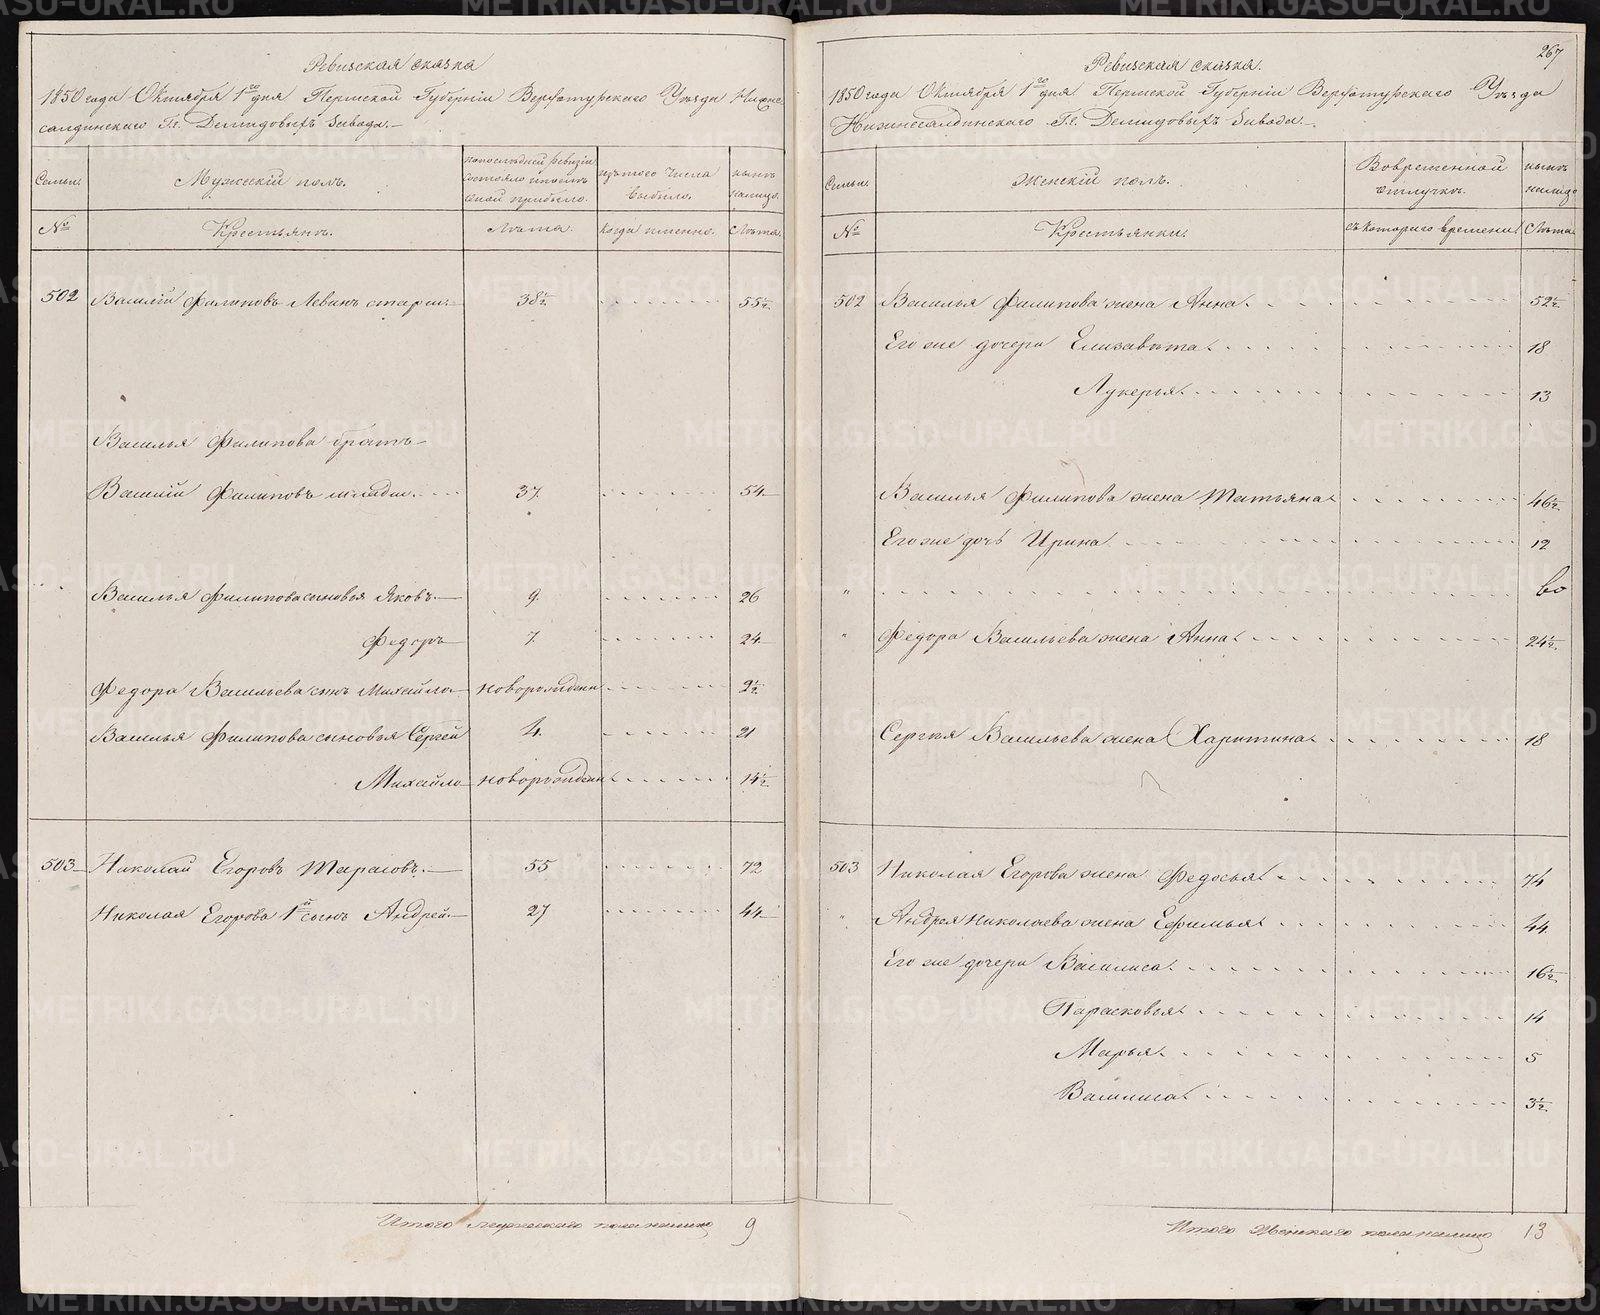 Ревизская сказка
1850 года Октября 1го дня Пермской Губернiи Верхотурскаго Уѣзда Нижне
салдинскаго Г.г. Демидовыхъ завода.
Семьи.
Мужескiй полъ.
по последней ревизiи состояло и после оной прибыло.
изъ того числа выбыло.
нынѣ на лицо.
№
Крестьянъ.
Лѣта.
Когда именно.
Лѣта.
502 Василiй Филиповъ Левинъ старш. 38½ 55½
Василья Филипова братъ
Василiй Филиповъ младш. 37. 54
Василья Филипова сыновья Яковъ. 9. 26
Федоръ 7. 24
Федора Васильева сынъ Михайло новорожден 2½
Василья Филипова сыновья Сергей 4. 21
Михайло новорожден 14½
503 Николай Егоровъ Тарасовъ. 55 72
Николая Егорова 1й сынъ Андрей. 27 44
Итого мужескаго пола налицо 9
267
Ревизская сказка.
1850 года Октября 1го дня Пермской Губернiи Верхотурскаго Уѣзда
Нижнесалдинскаго Г.г. Демидовыхъ завода.
Семьи.
Женскiй полъ.
Во временной отлучкѣ.
нынѣ налицо
№
Крестьянки.
съ котораго времени
Лѣта
502 Василья Филипова жена Анна. 52½
Его же дочери Елизавета. 18
Лукерья. 13
Василья Филипова жена Татьяна 46½
Его же дочь Ирина 12
" во
" Федора Васильева жена Анна 24½
Сергѣя Васильева жена Харитина 18
503 Николая Егорова жена Федосья 74
" Андрея Николаева жена Ефимья 44
Его же дочери Василиса. 16½
Парасковья 14
Марья. 5
Василиса 3½
Итого Женскаго пола налицо 13
METRIKI.GASO-URAL.RU